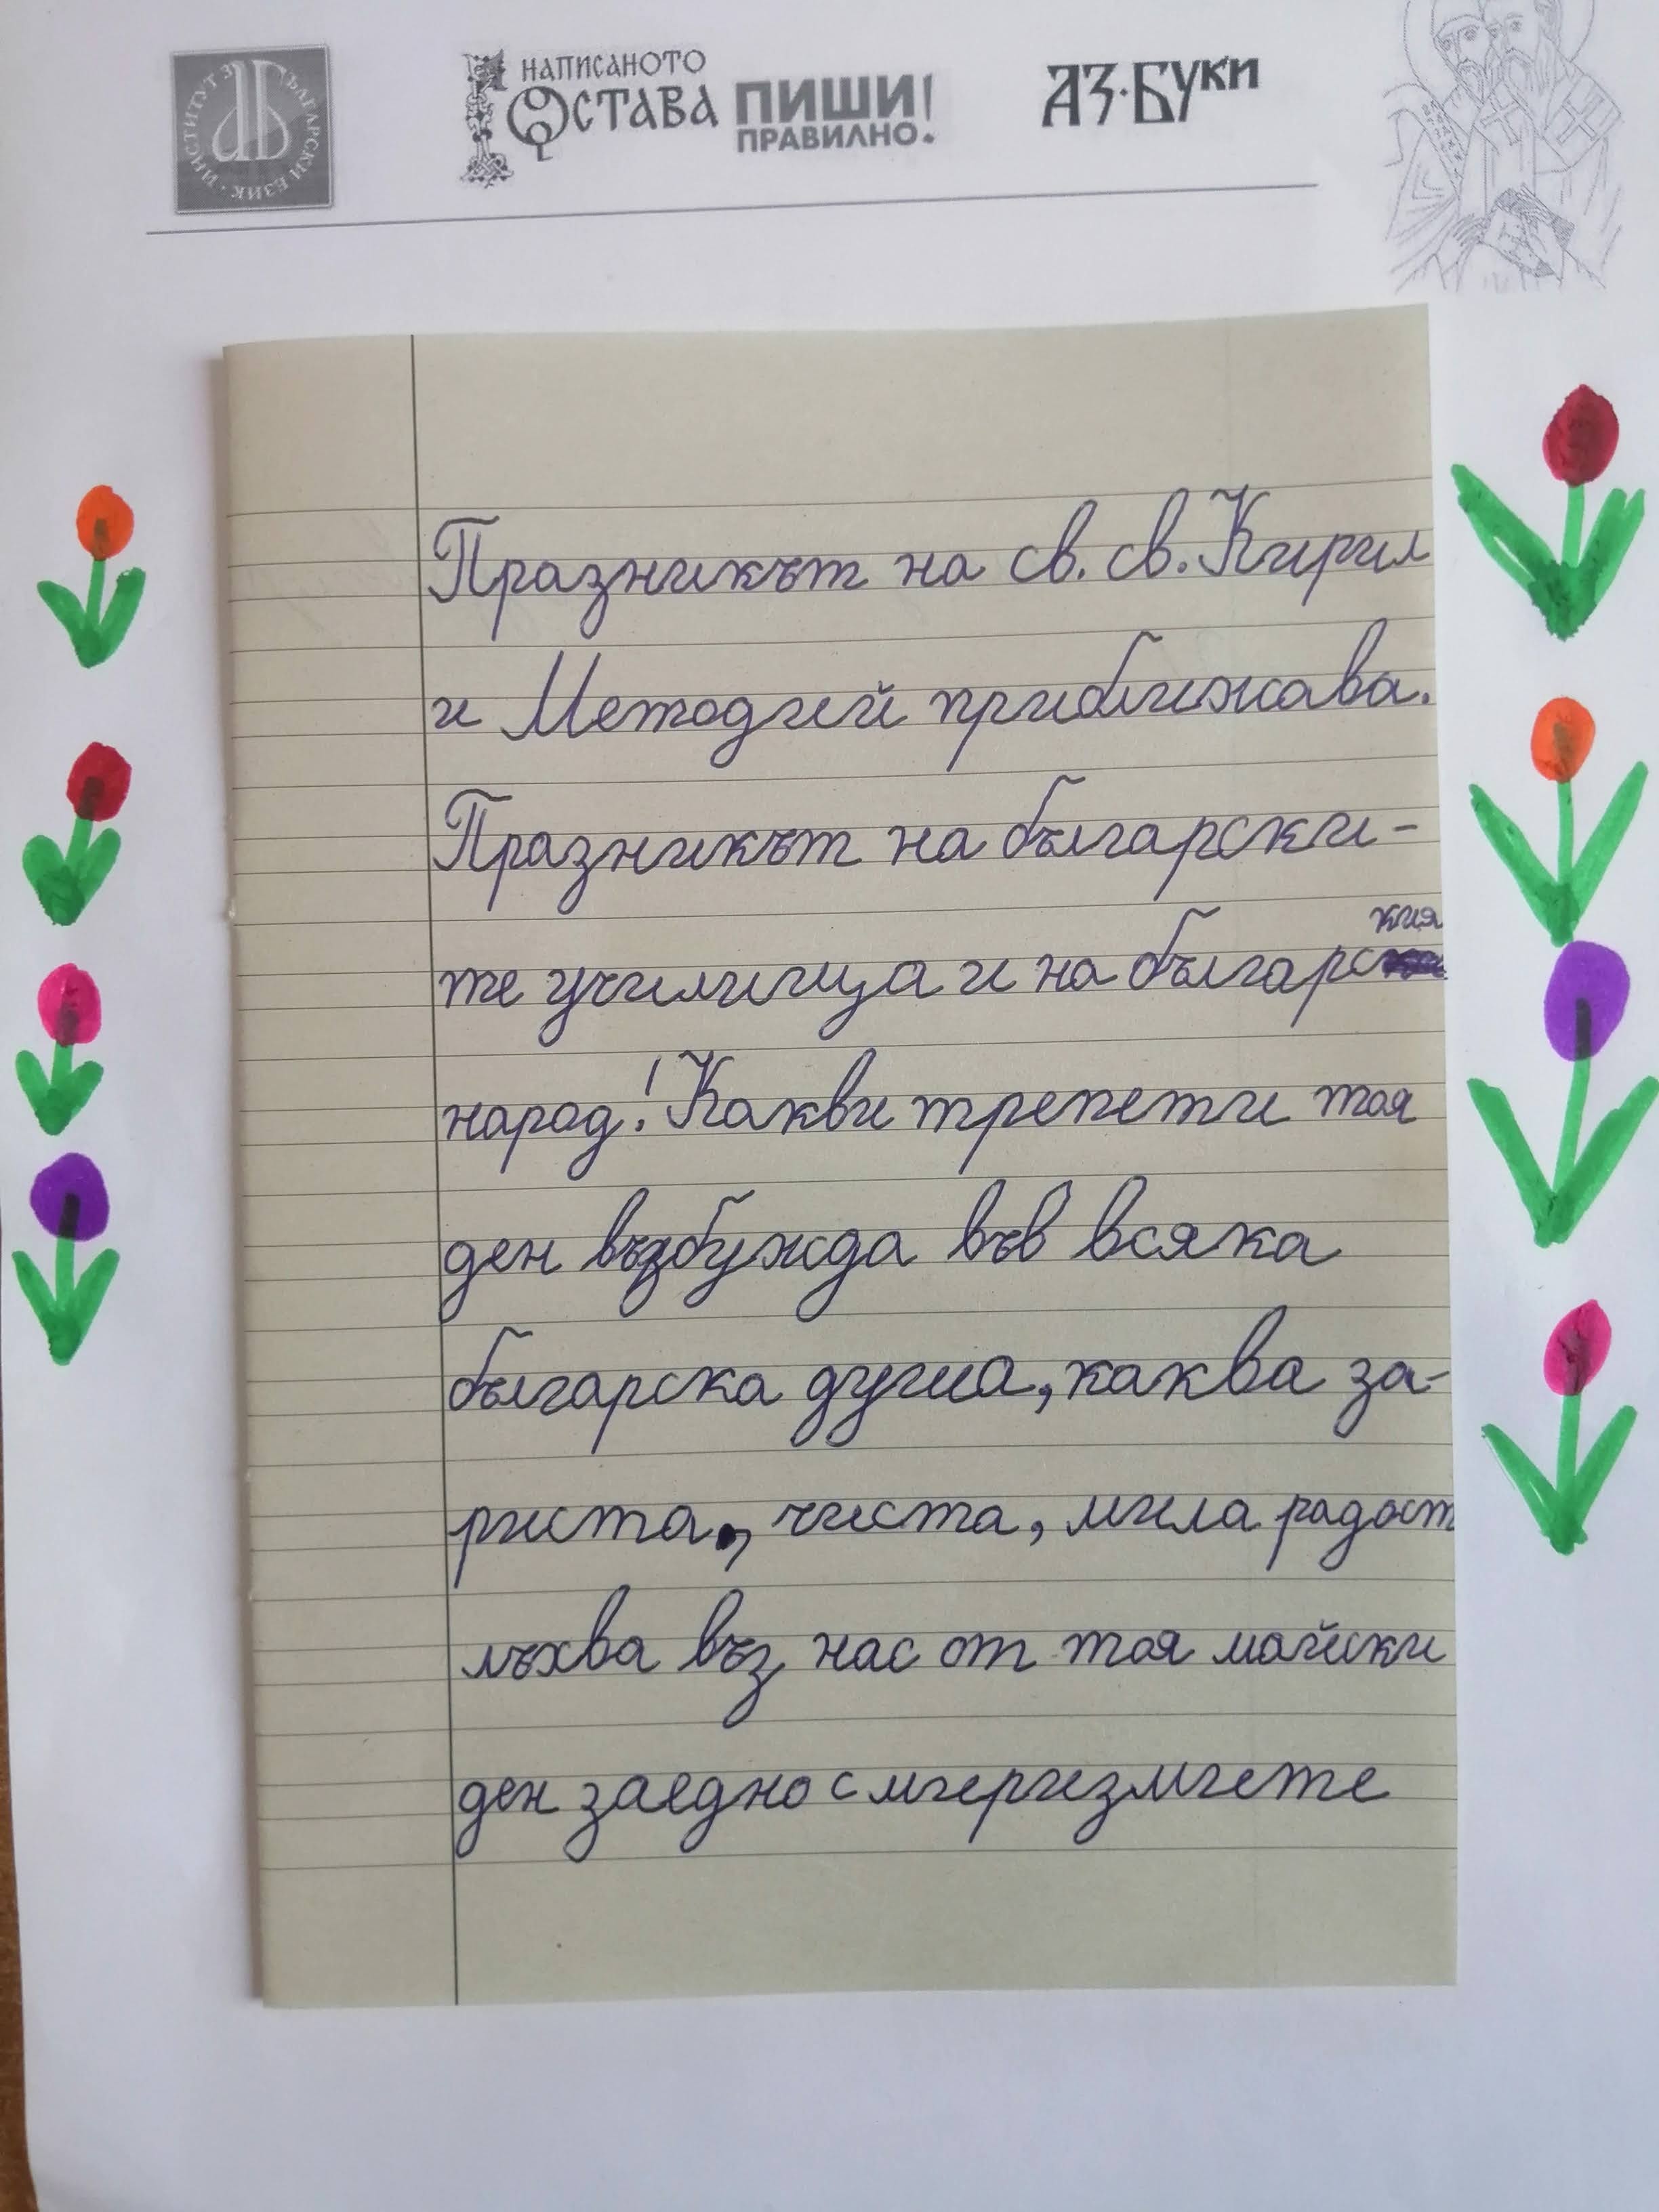 ИНСТИТУТ ЗА БЪЛГАРСКИ ЕЗИК
НАПИСАНОТО
ОСТАВА
ПИШИ!
ПРАВИЛНО.
АЗ·БУКИ
Празникът на св. св. Кирил
и Методий приближава.
Празникът на български-
те училища и на българския
народ! Какви трепети тоя
ден възбужда във всяка
българска душа, каква за-
риста, чиста, мила радост
лъхва въз нас от тоя майски
ден заедно с миризмиете